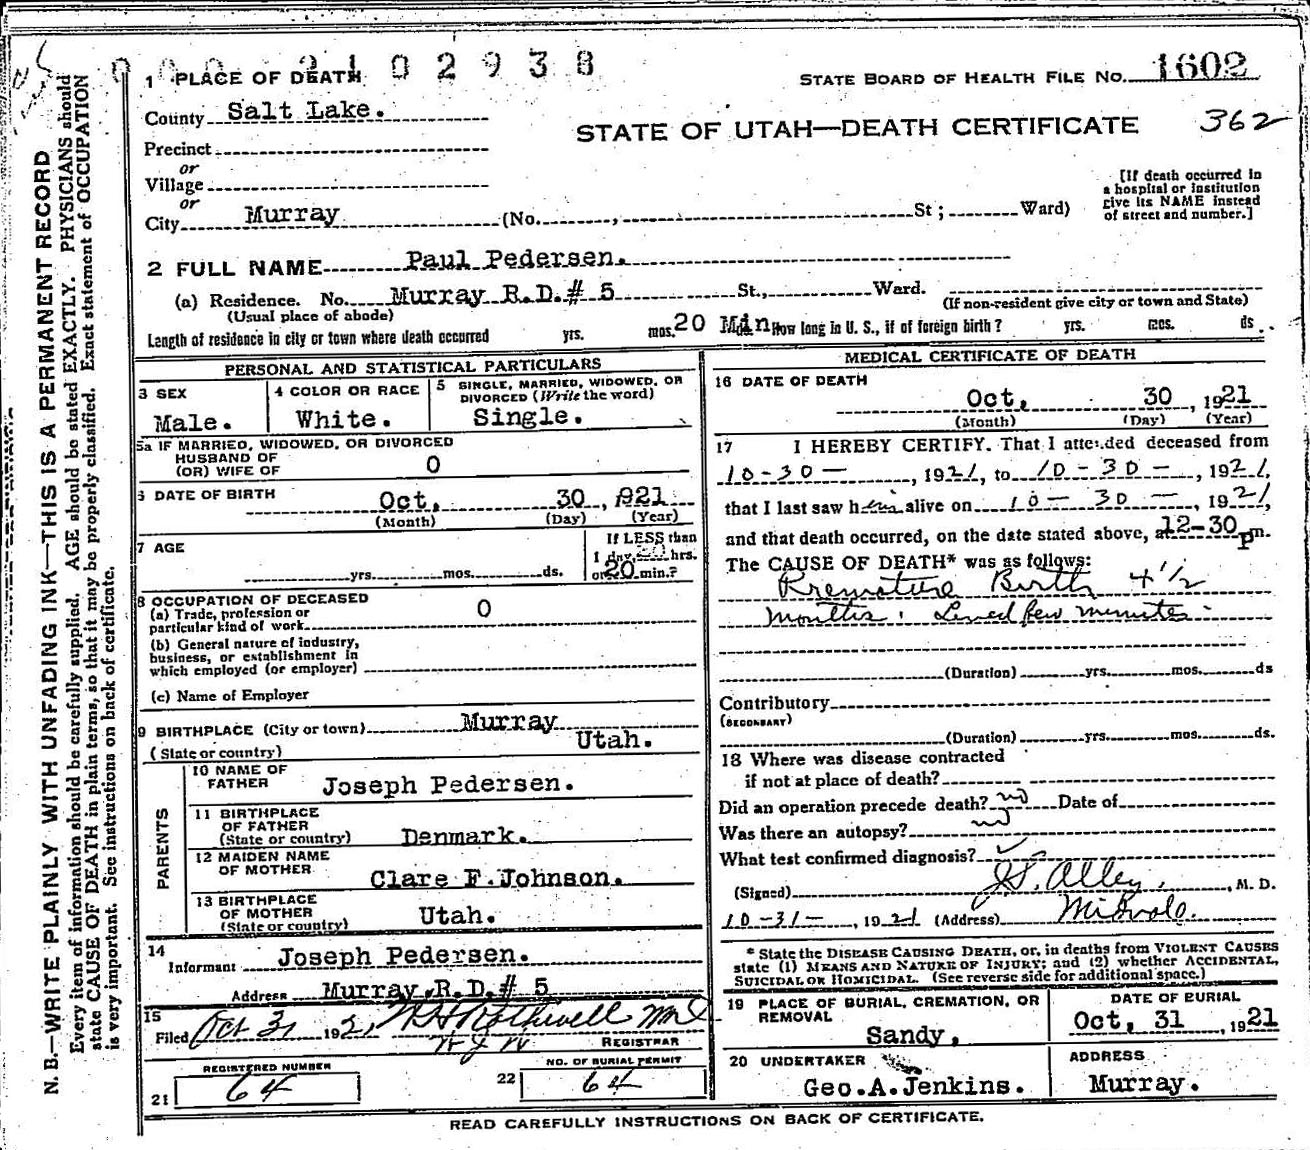 2102938
1 PLACE OF DEATH
STATE BOARD OF HEALTH FILE NO. 1602
County Salt Lake.
STATE OF UTAH—DEATH CERTIFICATE 362
Precinct
or
Village
or
City Murray (No. , St ; Ward)
[If death occurred in
a hospital or institution
give its NAME instead
of street and number.]
2 FULL NAME Paul Pedersen.
(a) Residence. No. Murray R.D.# 5 St., Ward.
(Usual place of abode) (If non-resident give city or town and State)
Length of residence in city or town where death occurred yrs. mos. 20 Min. How long in U. S., if of foreign birth? yrs. mos. ds.
PERSONAL AND STATISTICAL PARTICULARS
3 SEX
Male.
4 COLOR OR RACE
White.
5 SINGLE, MARRIED, WIDOWED, OR
DIVORCED (Write the word)
Single.
5a IF MARRIED, WIDOWED, OR DIVORCED
HUSBAND OF
(OR) WIFE OF O
6 DATE OF BIRTH Oct. 30, 1921
(Month) (Day) (Year)
7 AGE
yrs. mos. ds.
If LESS than
1 day, 20 hrs.
or 20 min.?
8 OCCUPATION OF DECEASED
(a) Trade, profession or
particular kind of work O
(b) General nature of industry,
business, or establishment in
which employed (or employer)
(c) Name of Employer
9 BIRTHPLACE (City or town) Murray
(State or country) Utah.
PARENTS
10 NAME OF
FATHER Joseph Pedersen.
11 BIRTHPLACE
OF FATHER
(State or country) Denmark.
12 MAIDEN NAME
OF MOTHER Clare F.Johnson.
13 BIRTHPLACE
OF MOTHER
(State or country) Utah.
14
Informant Joseph Pedersen.
Address Murray,R.D.# 5
15
Filed Oct 31 1921, W H Rothwell MD
REGISTRAR
REGISTERED NUMBER
21 64
NO. OF BURIAL PERMIT
22 64
MEDICAL CERTIFICATE OF DEATH
16 DATE OF DEATH
Oct. 30, 1921
(Month) (Day) (Year)
17 I HEREBY CERTIFY, That I attended deceased from
10-30-, 1921, to 10-30-, 1921,
that I last saw him alive on 10-30-, 1921,
and that death occurred, on the date stated above, at 12-30 pm.
The CAUSE OF DEATH* was as follows:
Premature Birth 4 1/2
months. Lived few minutes-
(Duration) yrs. mos. ds
Contributory
(SECONDARY)
(Duration) yrs. mos. ds.
18 Where was disease contracted
if not at place of death?
Did an operation precede death? no Date of
Was there an autopsy? no
What test confirmed diagnosis?
(Signed) Alley, M. D.
10-31-, 1921 (Address) Midvale.
* State the DISEASE CAUSING DEATH, or, in deaths from VIOLENT CAUSES
state (1) MEANS AND NATURE OF INJURY; and (2) whether ACCIDENTAL,
SUICIDAL OR HOMICIDAL. (See reverse side for additional space.)
19 PLACE OF BURIAL, CREMATION, OR
REMOVAL
Sandy.
DATE OF BURIAL
Oct. 31, 1921
20 UNDERTAKER
Geo.A.Jenkins.
ADDRESS
Murray.
READ CAREFULLY INSTRUCTIONS ON BACK OF CERTIFICATE.
N. B.—WRITE PLAINLY WITH UNFADING INK—THIS IS A PERMANENT RECORD
Every item of information should be carefully supplied. AGE should be stated EXACTLY. PHYSICIANS should
state CAUSE OF DEATH in plain terms, so that it may be properly classified. Exact statement of OCCUPATION
is very important. See instructions on back of certificate.